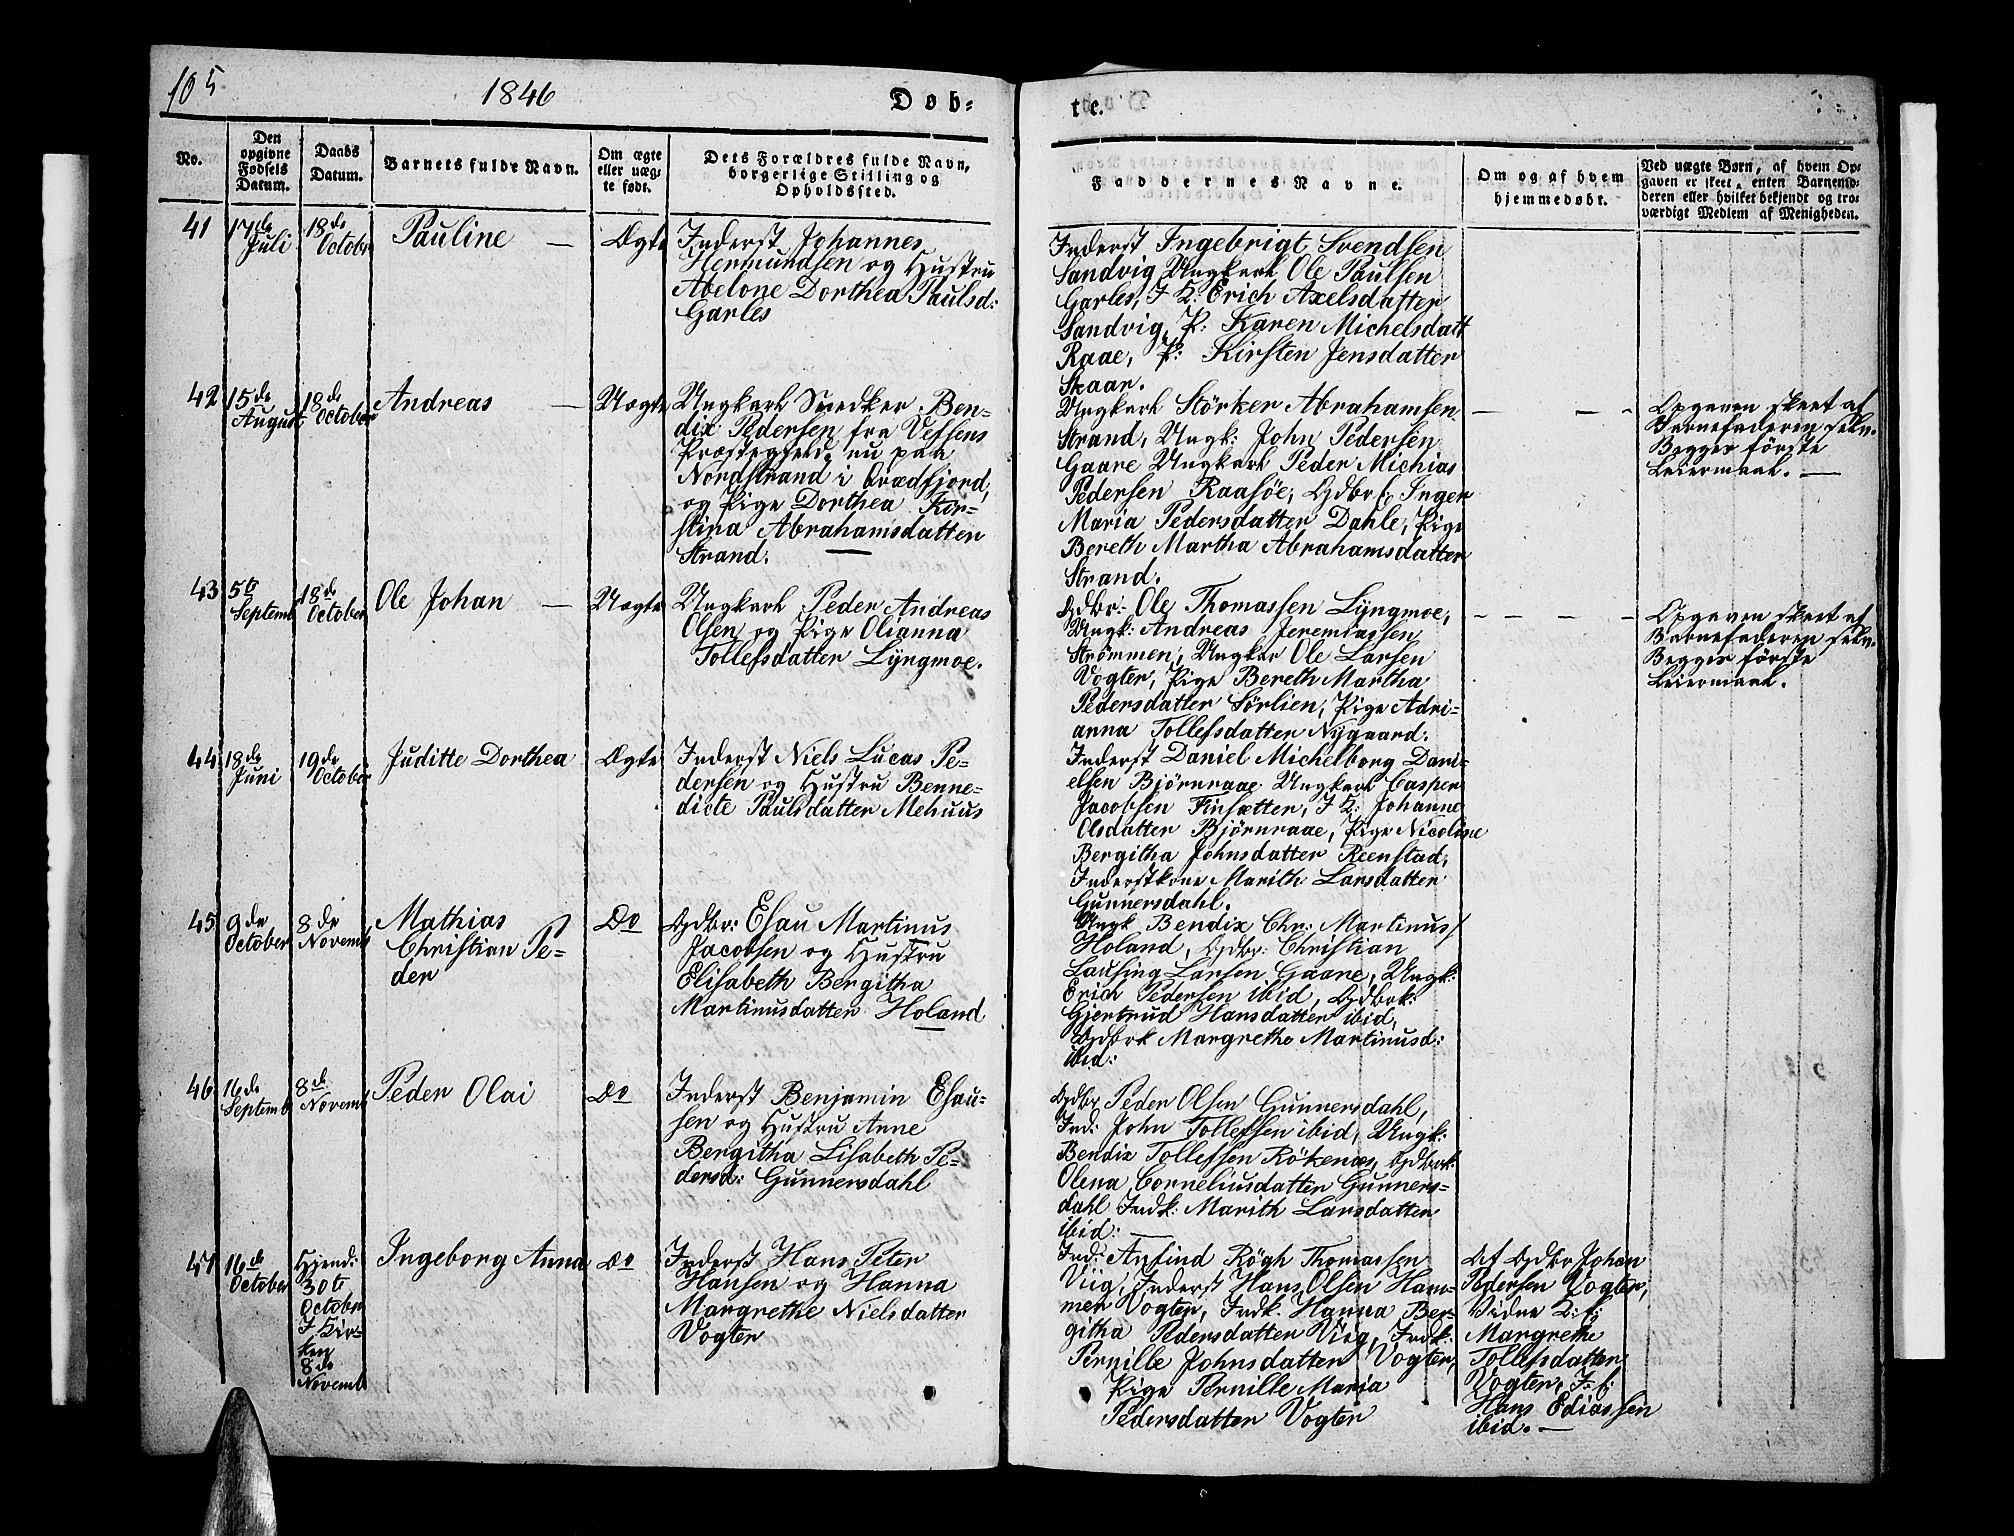 105
1846
Døb-
te.
No.
Den opgivne Fødsels Datum.
Daabs Datum.
Barnets fulde Navn.
Om ægte eller uægte født.
Dets Forældres fulde Navn, borgerlige Stilling og Opholdssted.
Faddernes Navne.
Om og af hvem hjemmedøbt.
Ved uægte Børn, af hvem Opgaven er skeet, enten Barnemoderen eller hvilket bekjendt og troværdigt Medlem af Menigheden.
41
17de
Juli
18de
October
Pauline —
Ægte
Inderst Johannes
Hermundsen og Hustru
Abelone Dorthea Paulsd:
Garles
Inderst Ingebrigt Svendsen
Sandvig Ungkarl Ole Paulsen
Garles, I K: Erich Axelsdatter
Sandvig, P: Karen Michelsdatt
Raae, P: Kirsten Jensdatter
Skaar.
42
15de
August
18de
October
Andreas —
Uægte
Ungkarl Snedker Ben-
dix Pedersen fra Vefsens
Præstegjeld, nu paa
Nordstrand i
og Pige Dorthea Kir-
stina Abrahamsdatter
Strand. —
Ungkarl Störker Abrahamsen
Strand, Ungk: John Pedersen
Gaare Ungkarl Peder Michias
Pedersen Raasöe, Gdbrk Inger
Maria Pedersdatter Dahle, Pige
Bereth Martha Abrahamsdatter
Strand.
— — —
Opgaven skeet af
Barnefaderen selv.
Begges første
Leiermaal. —
43
5te
Septemb
18de
October
Ole Johan —
Uægte
Ungkarl Peder Andreas
Olsen og Pige Olianna
Tollefsdatter Lÿngmoe.
Gdbr: Ole Thomassen Lÿngmoe,
Ungk: Andreas Jeremiassen
Strømmen, Ungkar Ole Larsen
Vogter, Pige Bereth Martha
Pedersdatter Sörlien, Pige Adri-
anna Tollefsdatter Nÿgaard.
— — — —
Opgaven skeet af
Barnefaderen selv.
Begges første
Leiermaal.
44
18de
Juni
19de
October
Juditte Dorthea
Ægte
Inderst Niels Lucas Pe-
dersen og Hustru Benne-
dicte Paulsdatter Mehuus
Inderst Daniel Michelborg Dani-
elsen Björnraae Ungkarl Casper
Jacobsen Finsætter, I K: Johanne
Olsdatter Björnraae, Pige Nicoline
Bergitha Johnsdatter Reenstad,
Inderstkone Marith Larsdatter
Gunnersdahl.
45
9de
October
8de
Novemb
Mathias
Christian Pe-
der
Do
Gdbr: Esau Martinus
Jacobsen og Hustru
Elisabeth Bergitha
Martinusdatter Holand
Ungk Bendix Chr: Martinus/
Holand, Gdbr: Christian
Lausing Larsen Gaare, Ungk:
Erich Pedersen ibid, Gdbrk:
Gjertrud Hansdatter ibid,
Gdbrk Margrethe Martinusd:
ibid:
46
16de
Septemb
8de
Novemb
Peder Olai
Do
Inderst Benjamin Esau-
sen og Hustru Anne
Bergitha Lisabeth Pe-
dersd: Gunnersdahl
Gdbr Peder Olsen Gunnersdahl,
Ind: John Tollefsen ibid, Ungk:
Bendix Tollefsen Rökenæs, Gdbrk:
Olena Corneliusdatter Gunners-
dahl Indk: Marith Larsdatter
ibid: —
47
16de
October
Hjemd:
30te
October
I Kir-
ken
8de
Novemb
Ingeborg Anna
Do
Inderst Hans Peter
Hansen og Hanna
Margrethe Nielsdatter
Vogter
Ind: Anfind Rögh Thomassen
Viig, Inderst Hans Olsen Ham-
men Vogter, Indk. Hanna Ber-
githa Pedersdatter Viig, Indk:
Pernille Johnsdatter Vogter,
Pige Pernille Maria
Pedersdatter Vogter
Af Gdbr Johan
Pedersen Vogter,
Vidne K: f:
Margrethe
Tollefsdatter
Vogter, I: f:
Hans Ediassen
ibid. —